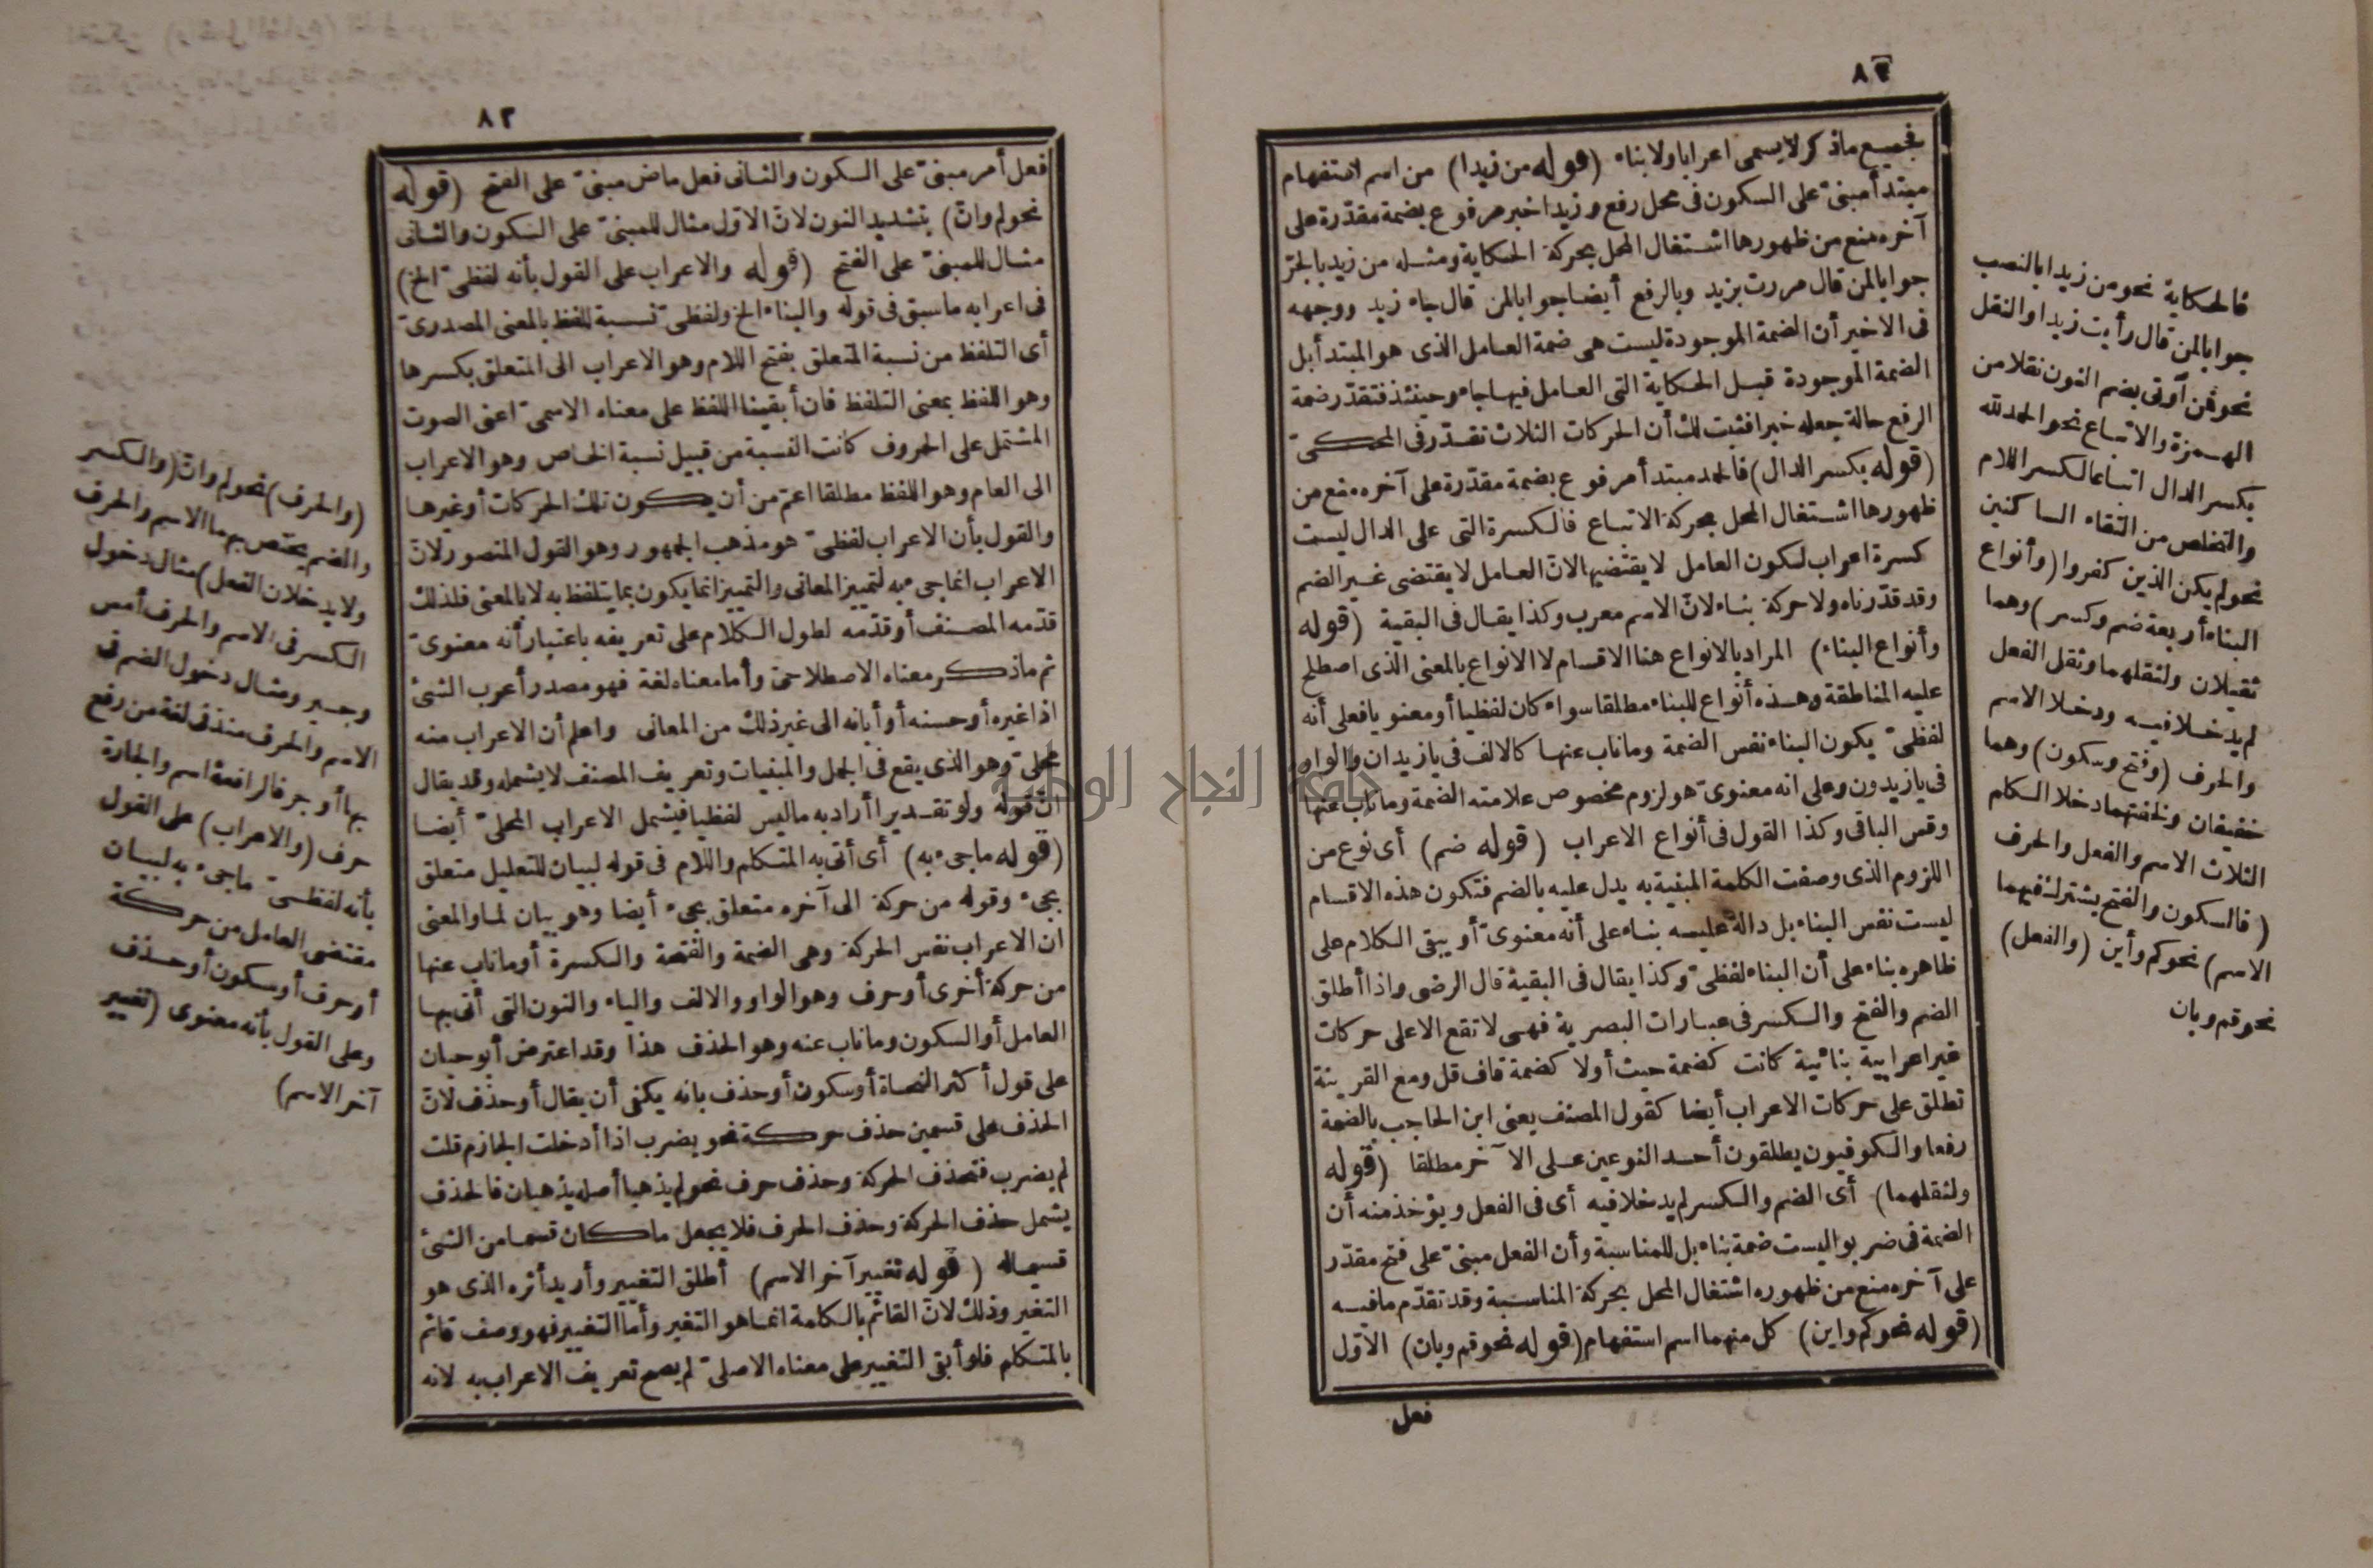 ٨٢
فجميع ماذكر لا يسمى اعرابا ولا بناء (قوله من زيدا) من اسم استفهام
مبتدأ مبنىّ على السكون فى محل رفع وزيدا خبر مرفوع بضمة مقدّرة على
آخره منع من ظهورها اشتغال المحل بحركة الحكاية ومثله من زيد بالجرّ
جوابا لمن قال مررت بزيد وبالرفع أيضا جوابا لمن قال جاء زيد ووجهه
فى الاخير أن الضمة الموجودة ليست هى ضمة العامل الذى هو المبتدأ بل
الضمة الموجودة قبل الحكاية التى العامل فيها جاء وحينئذ فتقدّر ضمة
الرفع حالة جعله خبرا فثبت لك أن الحركات الثلاث تقدّر فى المحكىّ
(قوله بكسر الدال) فالحمد مبتدأ مرفوع بضمة مقدّرة على آخره منع من
ظهورها اشتغال المحل بحركة الاتباع فالكسرة التى على الدال ليست
كسرة اعراب لكون العامل لا يقتضيها لانّ العامل لا يقتضى غير الضم
وقد قدّرناه ولا حركة بناء لانّ الاسم معرب وكذا يقال فى البقية (قوله
وأنواع البناء) المراد بالانواع هنا الاقسام لا الانواع بالمعنى الذى اصطلح
عليه المناطقة وهذه أنواع للبناء مطلقا سواء كان لفظيا أو معنويا فعلى أنه
لفظىّ يكون البناء نفس الضمة وما ناب عنها كالالف فى يازيدان والواو
فى يازيدون وعلى انه معنوىّ هو لزوم مخصوص علامته الضمة وما ناب عنها
وقس الباقى وكذا القول فى أنواع الاعراب (قوله ضم) أى نوع من
اللزوم الذى وصفت الكلمة المبنية به يدل عليه بالضم فتكون هذه الاقسام
ليست نفس البناء بل دالة عليه بناء على أنه معنوىّ أو يبقى الكلام على
ظاهره بناء على أن البناء لفظىّ وكذا يقال فى البقية قال الرضى واذا أطلق
الضم والفتح والكسر فى عبارات البصرية فهى لا تقع الا على حركات
غير اعرابية بنائية كانت كضمة حيث أولا كضمة قاف قل ومع القرينة
تطلق على حركات الاعراب أيضا كقول المصنف يعنى ابن الحاجب بالضمة
رفعا والكوفيون يطلقون أحد النوعين على الآخر مطلقا (قوله
ولثقلهما) أى الضم والكسر لم يدخلا فيه أى فى الفعل ويؤخذ منه أن
الضمة فى ضربوا ليست ضمة بناء بل للمناسبة وأن الفعل مبنىّ على فتح مقدّر
على آخره منع من ظهوره اشتغال المحل بحركة المناسبة وقد تقدّم ما فيه
(قوله نحو كم واين) كل منهما اسم استفهام (قوله نحو قم وبان) الاوّل
فعل
فالحكاية نحو من زيدا بالنصب
جوابا لمن قال رأيت زيدا والنقل
نحو فمن أوتى بضم النون نقلا من
الهمزة والاتباع نحو الحمد لله
بكسر الدال اتباعا لكسر اللام
والتخلص من التقاء الساكنين
نحو لم يكن الذين كفروا (وأنواع
البناء أربعة ضم وكسر) وهما
ثقيلان ولثقلهما وثقل الفعل
لم يدخلا فيه ودخلا الاسم
والحرف (وفتح وسكون) وهما
خفيفان ولخفتهما دخلا الكلم
الثلاث الاسم والفعل والحرف
(فالسكون والفتح يشترك فيهما
الاسم) نحو كم وأين (والفعل)
نحو قم وبان
٨٣
فعل أمر مبنىّ على السكون والثانى فعل ماض مبنىّ على الفتح (قوله
نحو لم وانّ) بتشديد النون لانّ الاوّل مثال للمبنىّ على السكون والثانى
مثال للمبنىّ على الفتح (قوله والاعراب على القول بأنه لفظىّ الخ)
فى اعرابه ما سبق فى قوله والبناء الخ ولفظىّ نسبة للفظ بالمعنى المصدرىّ
أى التلفظ من نسبة المتعلق بفتح اللام وهو الاعراب الى المتعلق بكسرها
وهو اللفظ بمعنى التلفظ فان أبقينا اللفظ على معناه الاسمىّ اعنى الصوت
المشتمل على الحروف كانت النسبة من قبيل نسبة الخاص وهو الاعراب
الى العام وهو اللفظ مطلقا اعمّ من أن يكون تلك الحركات أو غيرها
والقول بأن الاعراب لفظىّ هو مذهب الجمهور وهو القول المنصور لانّ
الاعراب انما جىء به لتمييز المعانى والتمييز انما يكون بما يتلفظ به لا بالمعنى فلذلك
قدّمه المصنف أو قدّمه لطول الكلام على تعريفه باعتبار أنه معنوىّ
ثم ماذكر معناه الاصطلاحىّ وأما معناه لغة فهو مصدر أعرب الشئ
اذا غيره أو حسنه أو أبانه الى غير ذلك من المعانى واعلم أن الاعراب منه
محلىّ وهو الذى يقع فى الجمل والمبنيات وتعريف المصنف لا يشمله وقد يقال
انّ قوله ولو تقديرا أراد به ما ليس لفظيا فيشمل الاعراب المحلىّ أيضا
(قوله ما جىء به) أى أتى به المتكلم واللام فى قوله لبيان للتعليل متعلق
بجىء وقوله من حركة الى آخره متعلق بجىء أيضا وهو بيان لما والمعنى
ان الاعراب نفس الحركة وهى الضمة والفتحة والكسرة أو ما ناب عنها
من حركة أخرى أو حرف وهو الواو والالف والياء والنون التى أتى بها
العامل أو السكون وما ناب عنه وهو الحذف هذا وقد اعترض أبو حيان
على قول أكثر النحاة أو سكون أو حذف بانه يكفى أن يقال أو حذف لانّ
الحذف على قسمين حذف حركة نحو يضرب اذا أدخلت الجازم قلت
لم يضرب فتحذف الحركة وحذف حرف نحو لم يذهبا أصله يذهبان فالحذف
يشمل حذف الحركة وحذف الحرف فلا يجعل ما كان قسما من الشئ
قسيما له (قوله تغيير آخر الاسم) أطلق التغيير وأريد أثره الذى هو
التغير وذلك لانّ القائم بالكلمة انما هو التغير وأما التغيير فهو وصف قائم
بالمتكلم فلو أبقى التغيير على معناه الاصلىّ لم يصح تعريف الاعراب به لانه
(والحرف) نحو لم وانّ (والكسر
والضم يختص بهما الاسم والحرف
ولا يدخلان الفعل) مثال دخول
الكسر فى الاسم والحرف أمس
وجير ومثال دخول الضم فى
الاسم والحرف منذ فى لغة من رفع
بها أو جر فالرافعة اسم والجارة
حرف (والاعراب) على القول
بأنه لفظىّ ماجىء به لبيان
مقتضى العامل من حركة
أو حرف أو سكون أو حذف
وعلى القول بأنه معنوى (تغيير
آخر الاسم)
جامعة النجاح الوطنية